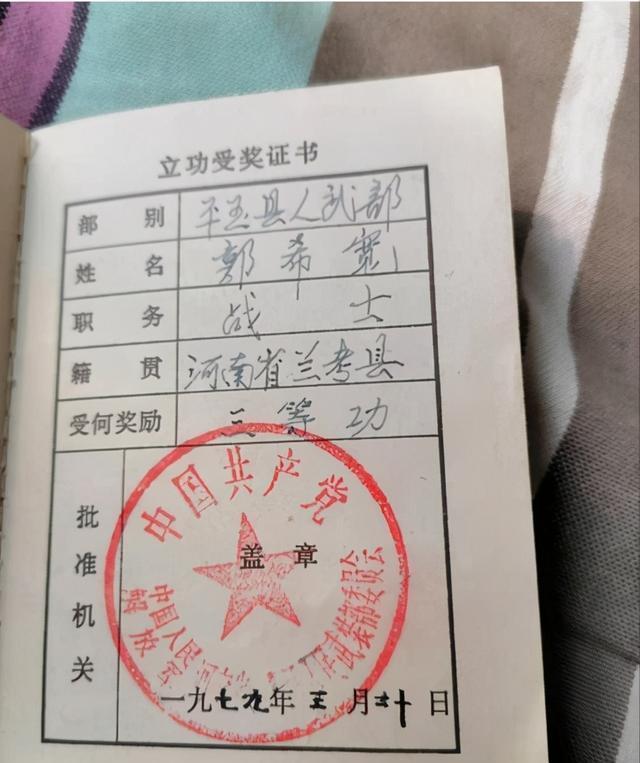 立功受奖证书
部别 平 县人武部
姓名 郭希宽
职务 战士
籍贯 河南省兰考县
受何奖励 三等功
批准机关 盖章
中国共产党
中国人民
解放军
武装部委员会
一九七九年三月二十日